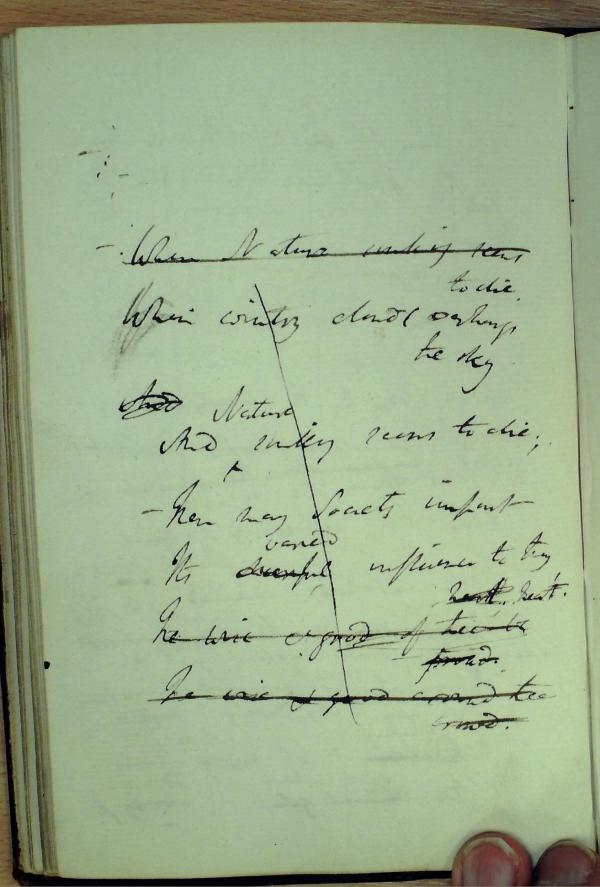 When Nature smiling seems
to die.
When wintry clouds oerhangs
the sky
And Nature
And smiling seems to die;
Then may Society impart
varied
Its cheerful influence to thy
heart. heart.
The wise & good
proud.
The wise & good around thee
crowd.